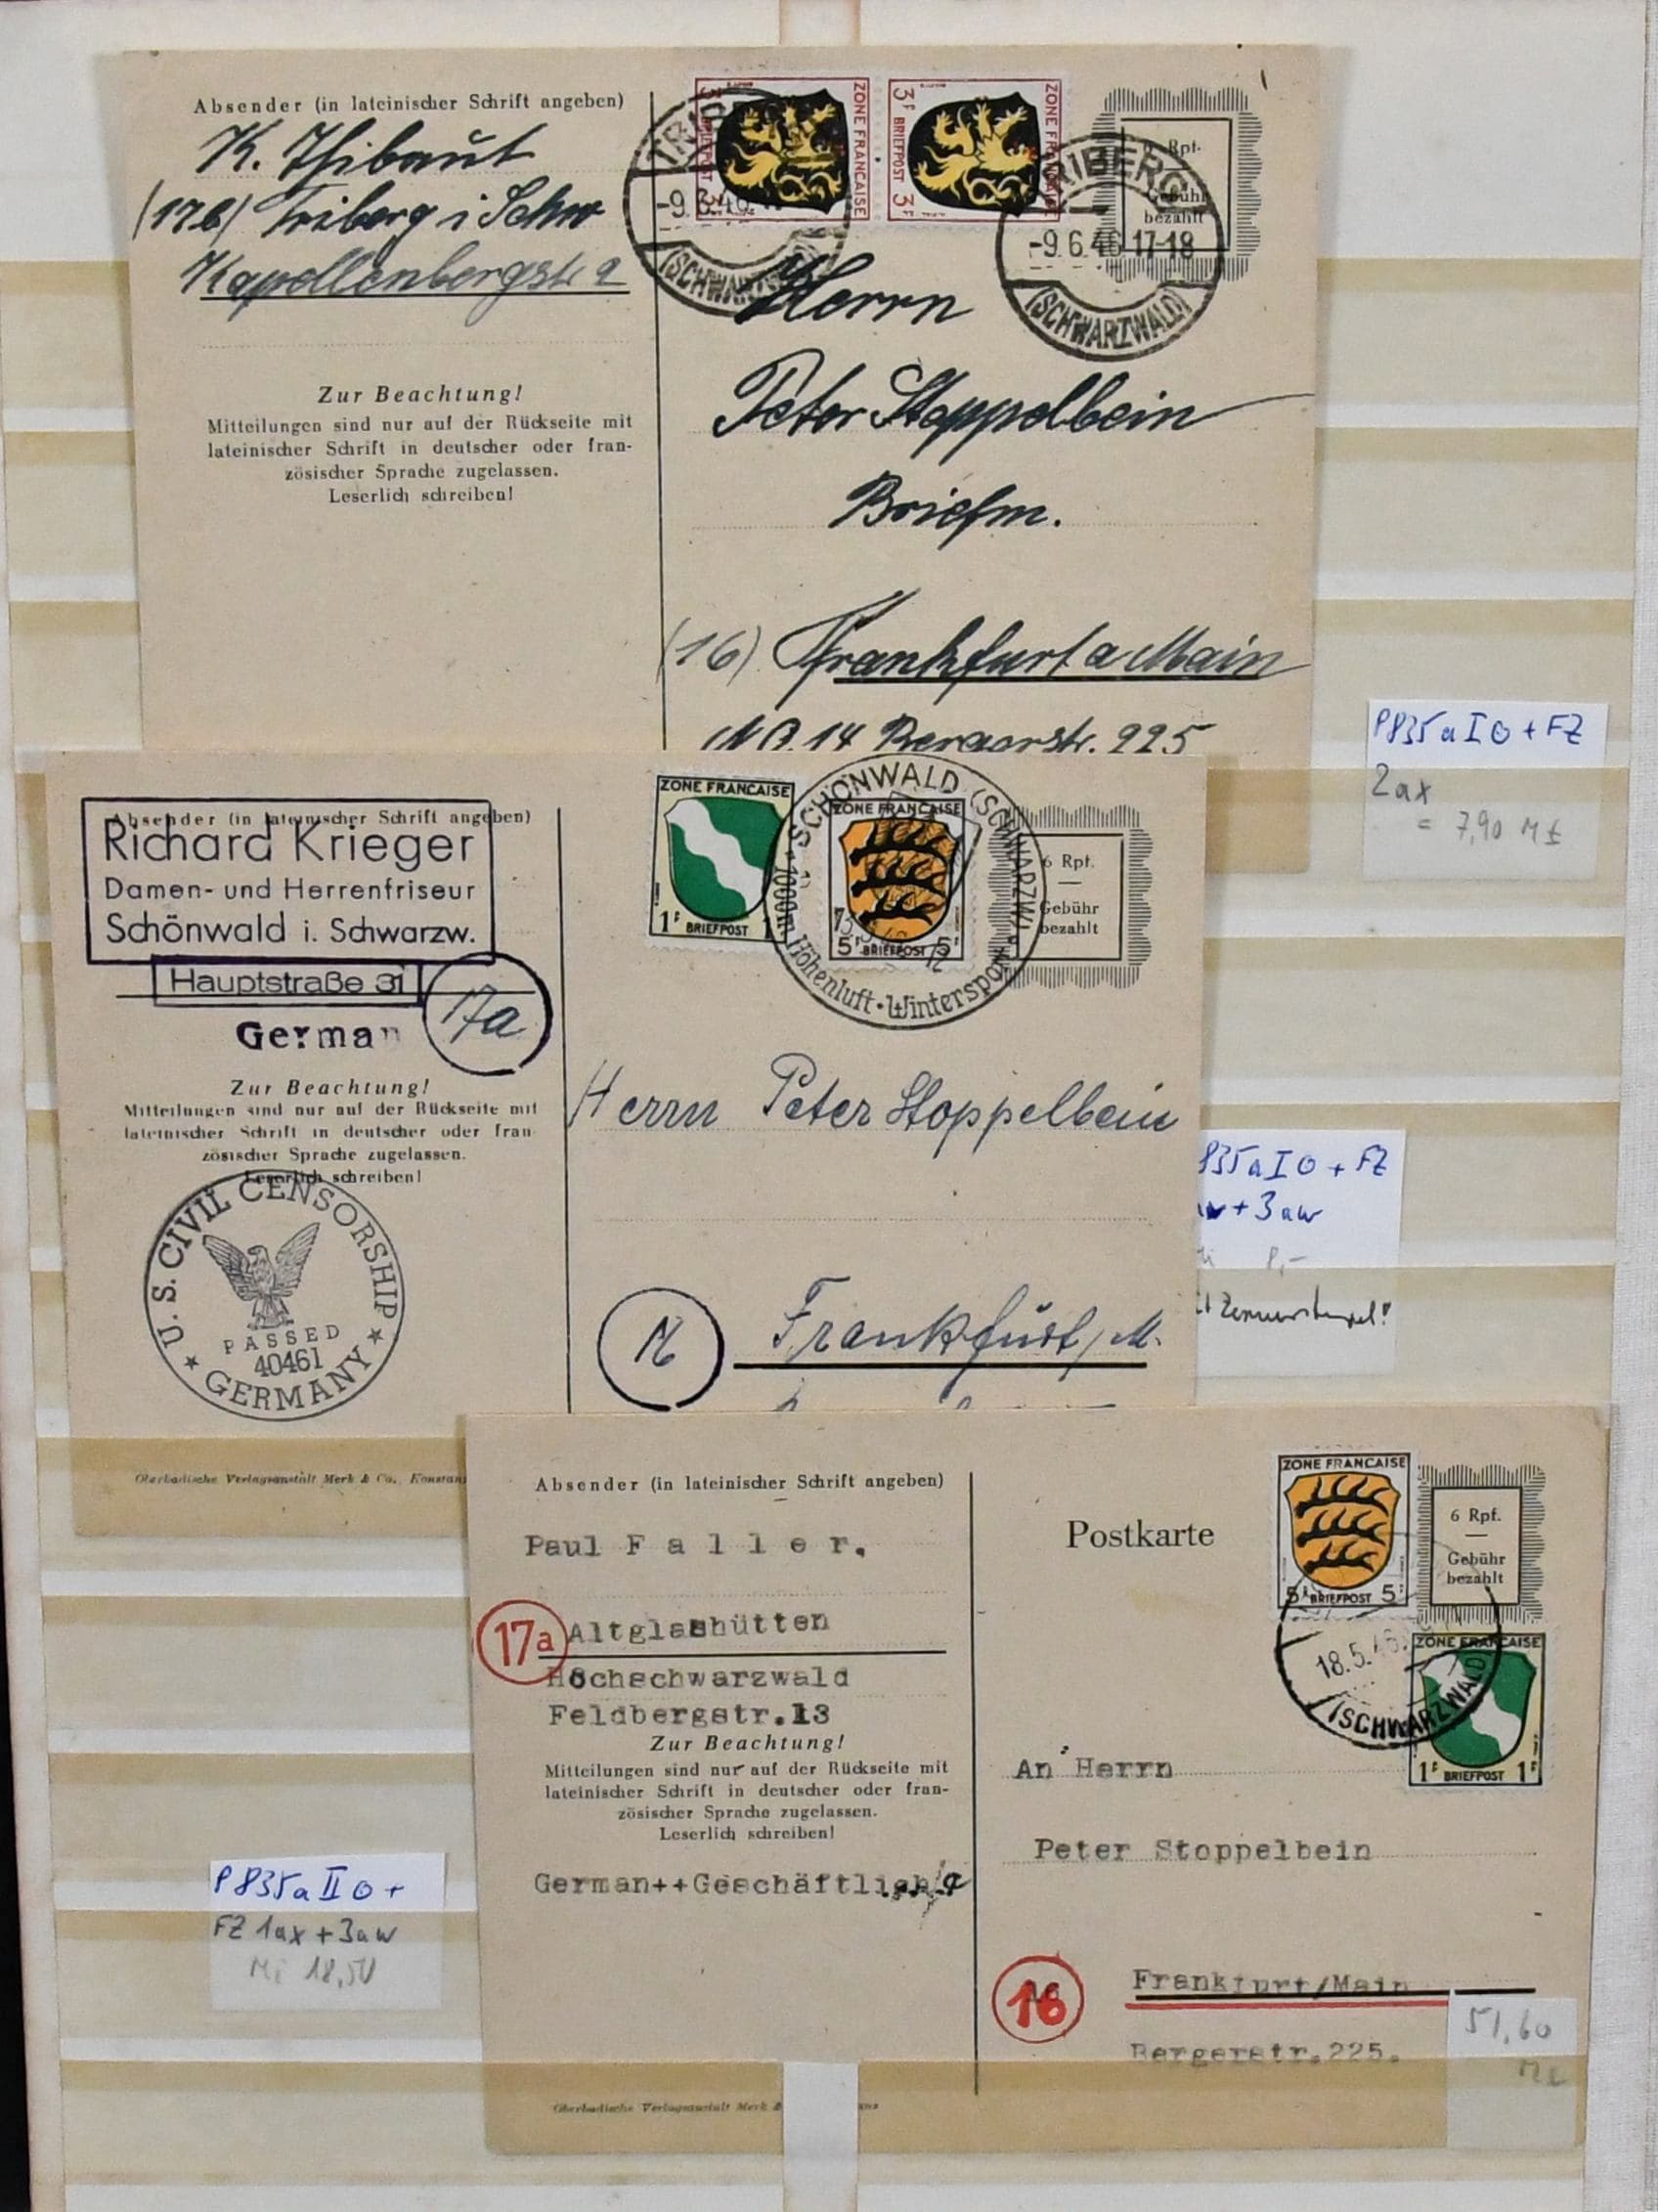 Absender (in lateinischer Schrift angeben)
K. Thibaut
(17b) Triberg i Schw
Kapellenbergstr. 2
Zur Beachtung!
Mitteilungen sind nur auf der Rückseite mit
lateinischer Schrift in deutscher oder fran-
zösischer Sprache zugelassen.
Leserlich schreiben!
ZONE FRANCAISE
3F BRIEFPOST 3F
ZONE FRANCAISE
3F BRIEFPOST 3F
TRIBERG
-9.6.46
(SCHWARZWALD)
TRIBERG
-9.6.46 17-18
(SCHWARZWALD)
6 Rpf.
Gebühr
bezahlt
Herrn
Peter Stoppelbein
Briefm.
(16) Frankfurt a Main
NO. 14 Bergerstr. 225
P835 a I ⊙ + FZ
2ax
= 7,90 M€
Absender (in lateinischer Schrift angeben)
Richard Krieger
Damen- und Herrenfriseur
Schönwald i. Schwarzw.
Hauptstraße 31
17a
German
Zur Beachtung!
Mitteilungen sind nur auf der Rückseite mit
lateinischer Schrift in deutscher oder fran-
zösischer Sprache zugelassen.
Leserlich schreiben!
U. S. CIVIL CENSORSHIP
PASSED
40461
GERMANY
Oberbadische Verlagsanstalt Merk & Co., Konstan
ZONE FRANCAISE
1F BRIEFPOST 1
ZONE FRANCAISE
5F BRIEFPOST 5F
SCHÖNWALD (SCHWARZW.)
1000m Höhenluft · Wintersport
6 Rpf.
Gebühr
bezahlt
Herrn Peter Stoppelbein
Frankfurt/M.
835 a I ⊙ + FZ
+ 3aw
8,-
Zensurstempel!
Absender (in lateinischer Schrift angeben)
Paul Faller.
17a Altglashütten
Hochschwarzwald
Feldbergstr.13
Zur Beachtung!
Mitteilungen sind nur auf der Rückseite mit
lateinischer Schrift in deutscher oder fran-
zösischer Sprache zugelassen.
Leserlich schreiben!
German++Geschäftlich
Oberbadische Verlagsanstalt Merk &
Postkarte
ZONE FRANCAISE
5F BRIEFPOST 5F
6 Rpf.
Gebühr
bezahlt
18.5.46
(SCHWARZWALD)
ZONE FRANCAISE
1F BRIEFPOST 1F
An Herrn
Peter Stoppelbein
16 Frankfurt/Main
Bergerstr.225.
P835a II ⊙ +
FZ 1ax + 3aw
Mi 18,50
51,60
M€